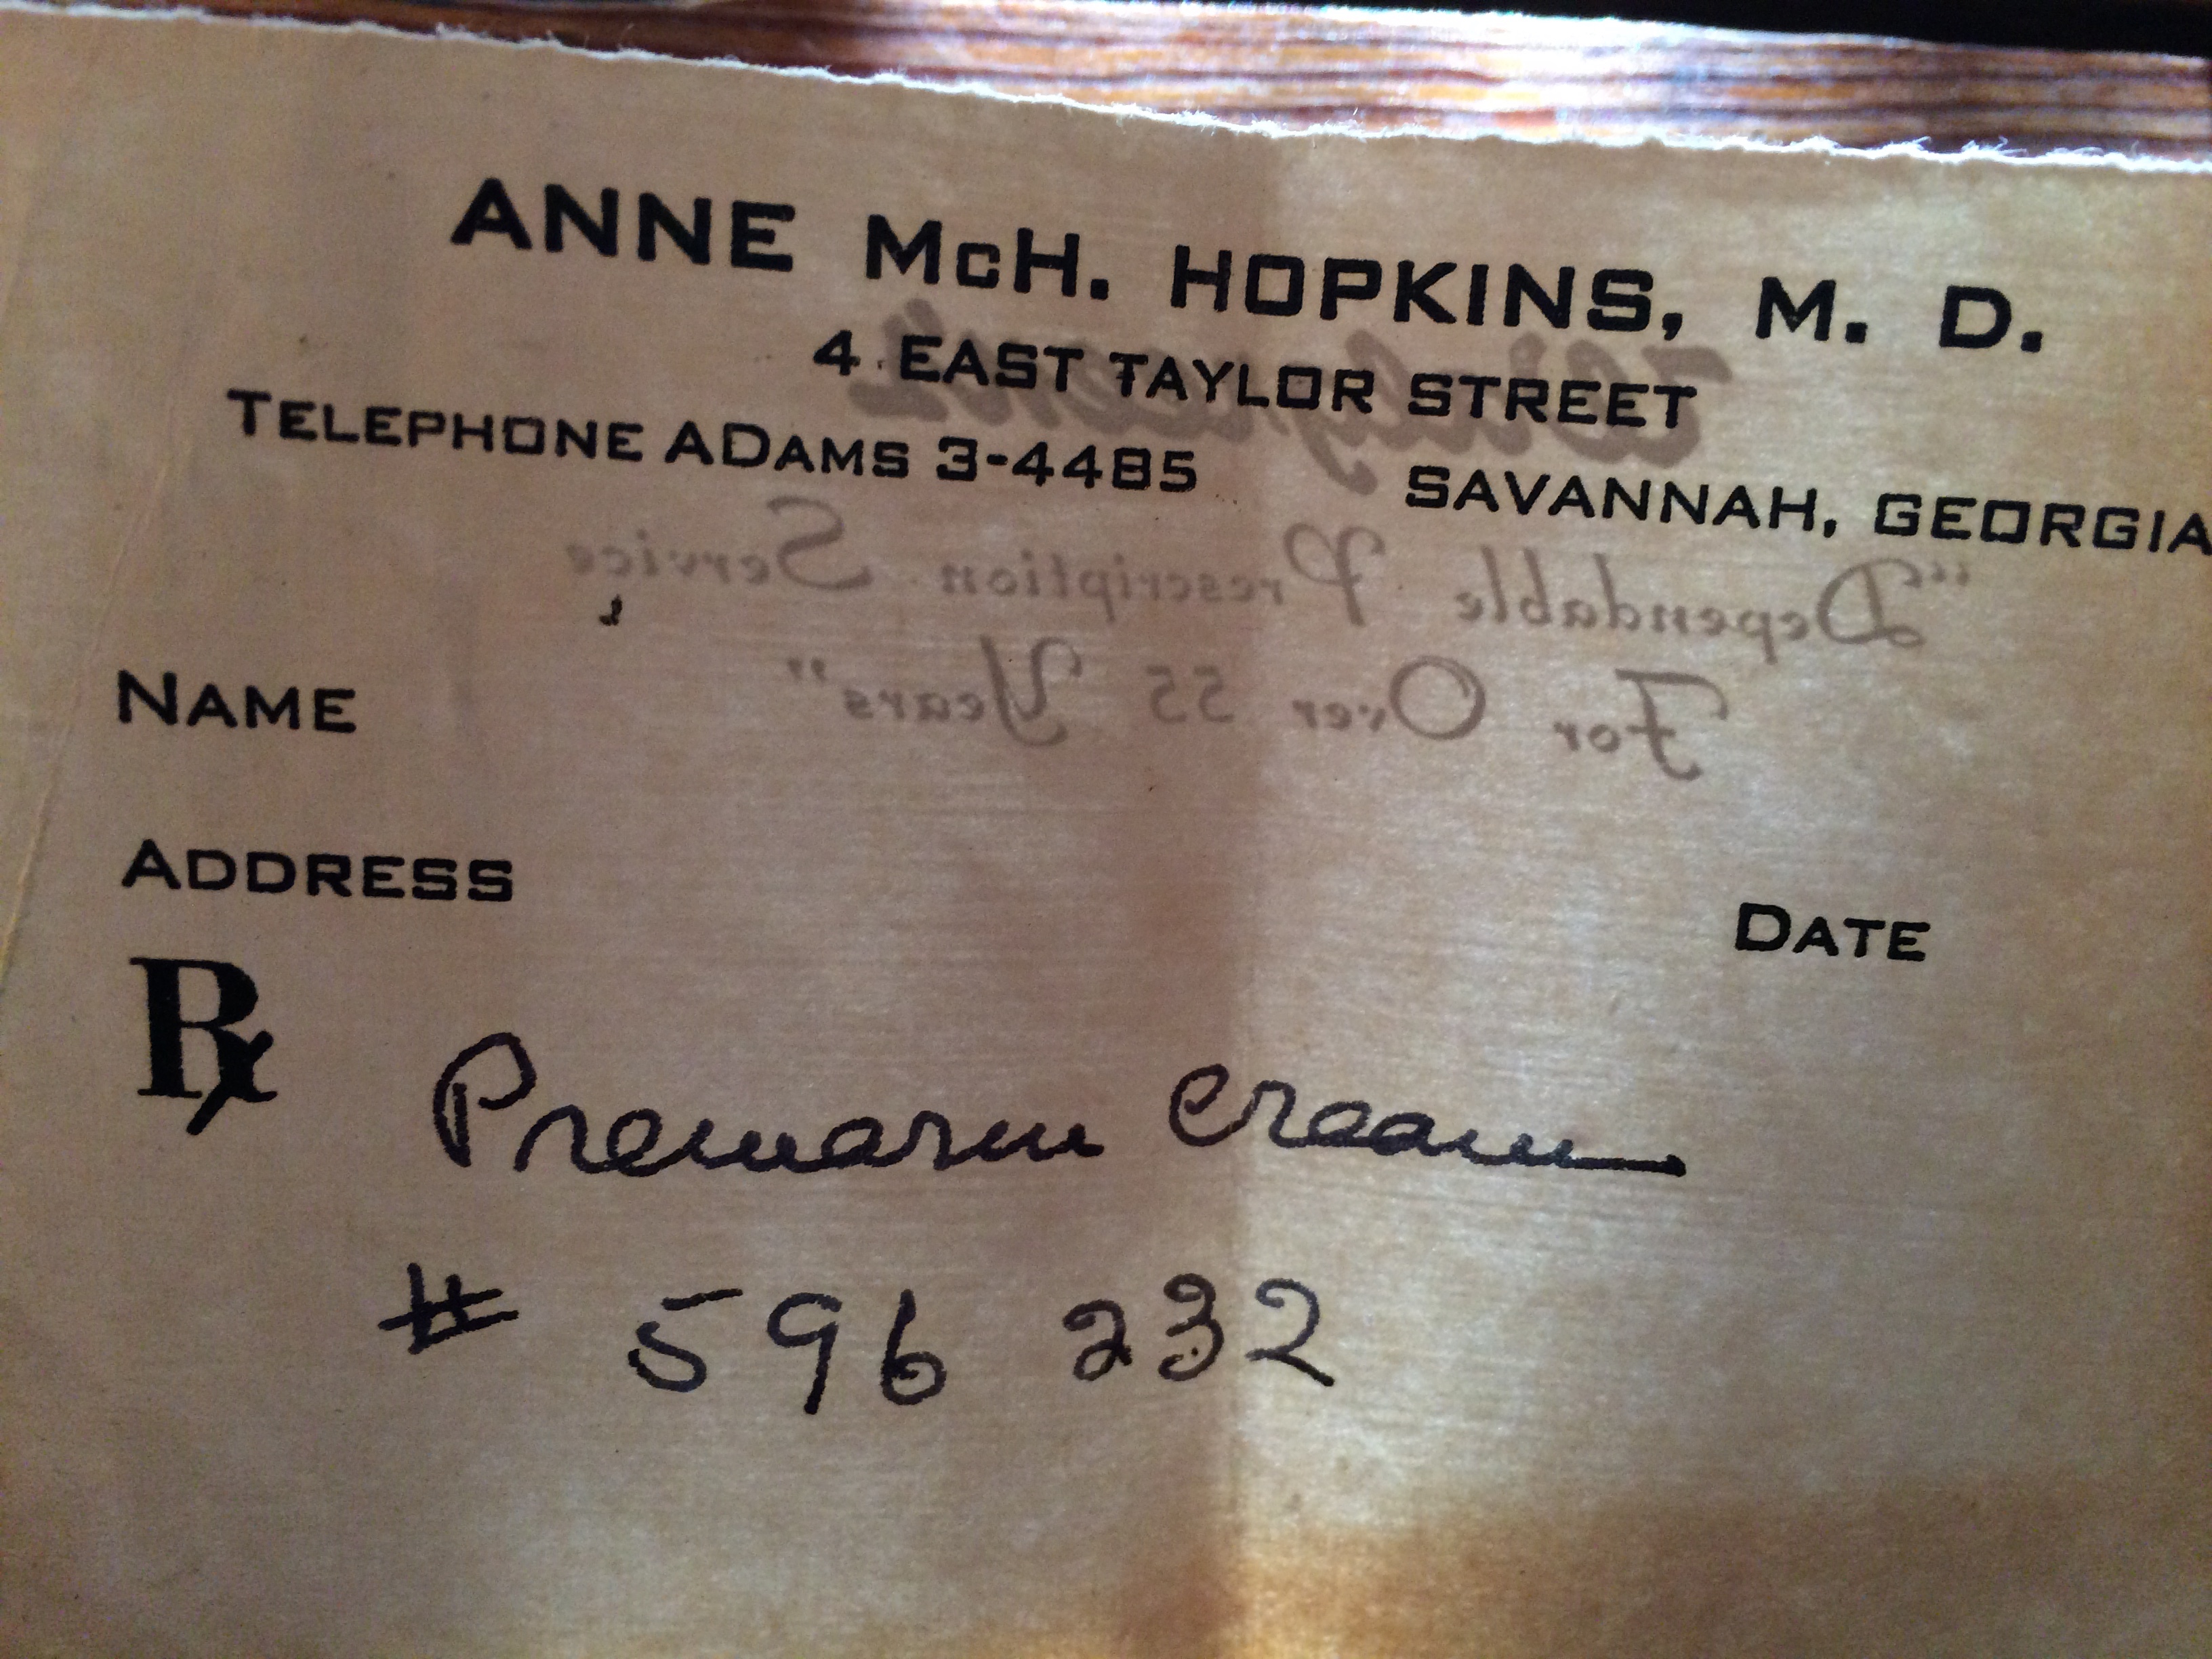 ANNE McH. HOPKINS, M. D.
4 EAST TAYLOR STREET
TELEPHONE ADAMS 3-4485 SAVANNAH, GEORGIA
"Dependable Prescription Service
For Over 55 Years"
NAME
ADDRESS
DATE
Rx Premarin Cream
# 596 232